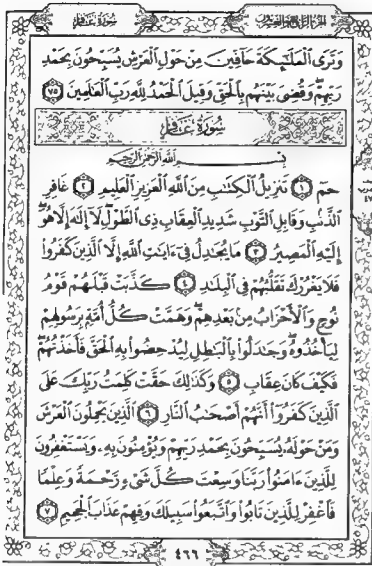 سُورَةُ غَافِر
وَتَرَى ٱلْمَلَٰٓئِكَةَ حَآفِّينَ مِنْ حَوْلِ ٱلْعَرْشِ يُسَبِّحُونَ بِحَمْدِ
رَبِّهِمْ وَقُضِىَ بَيْنَهُم بِٱلْحَقِّ وَقِيلَ ٱلْحَمْدُ لِلَّهِ رَبِّ ٱلْعَٰلَمِينَ ٧٥
سُورَةُ غَافِر
بِسْمِ ٱللَّهِ ٱلرَّحْمَٰنِ ٱلرَّحِيمِ
حمٓ ١ تَنزِيلُ ٱلْكِتَٰبِ مِنَ ٱللَّهِ ٱلْعَزِيزِ ٱلْعَلِيمِ ٢ غَافِرِ
ٱلذَّنۢبِ وَقَابِلِ ٱلتَّوْبِ شَدِيدِ ٱلْعِقَابِ ذِى ٱلطَّوْلِ لَآ إِلَٰهَ إِلَّا هُوَ
إِلَيْهِ ٱلْمَصِيرُ ٣ مَا يُجَٰدِلُ فِىٓ ءَايَٰتِ ٱللَّهِ إِلَّا ٱلَّذِينَ كَفَرُوا۟
فَلَا يَغْرُرْكَ تَقَلُّبُهُمْ فِى ٱلْبِلَٰدِ ٤ كَذَّبَتْ قَبْلَهُمْ قَوْمُ
نُوحٍ وَٱلْأَحْزَابُ مِنۢ بَعْدِهِمْ وَهَمَّتْ كُلُّ أُمَّةٍۭ بِرَسُولِهِمْ
لِيَأْخُذُوهُ وَجَٰدَلُوا۟ بِٱلْبَٰطِلِ لِيُدْحِضُوا۟ بِهِ ٱلْحَقَّ فَأَخَذْتُهُمْ
فَكَيْفَ كَانَ عِقَابِ ٥ وَكَذَٰلِكَ حَقَّتْ كَلِمَتُ رَبِّكَ عَلَى
ٱلَّذِينَ كَفَرُوٓا۟ أَنَّهُمْ أَصْحَٰبُ ٱلنَّارِ ٦ ٱلَّذِينَ يَحْمِلُونَ ٱلْعَرْشَ
وَمَنْ حَوْلَهُۥ يُسَبِّحُونَ بِحَمْدِ رَبِّهِمْ وَيُؤْمِنُونَ بِهِۦ وَيَسْتَغْفِرُونَ
لِلَّذِينَ ءَامَنُوا۟ رَبَّنَا وَسِعْتَ كُلَّ شَىْءٍ رَّحْمَةً وَعِلْمًا
فَٱغْفِرْ لِلَّذِينَ تَابُوا۟ وَٱتَّبَعُوا۟ سَبِيلَكَ وَقِهِمْ عَذَابَ ٱلْجَحِيمِ ٧
٤٦٦